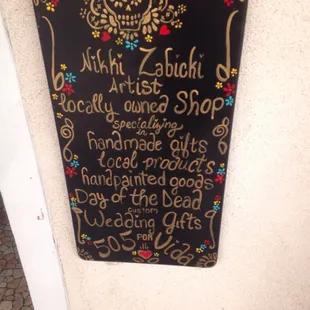 Nikki Zabicki
Artist
locally owned Shop
specializing
in
handmade gifts
local products
handpainted goods
Day of the Dead
custom
Wedding gifts
505 POR Vida